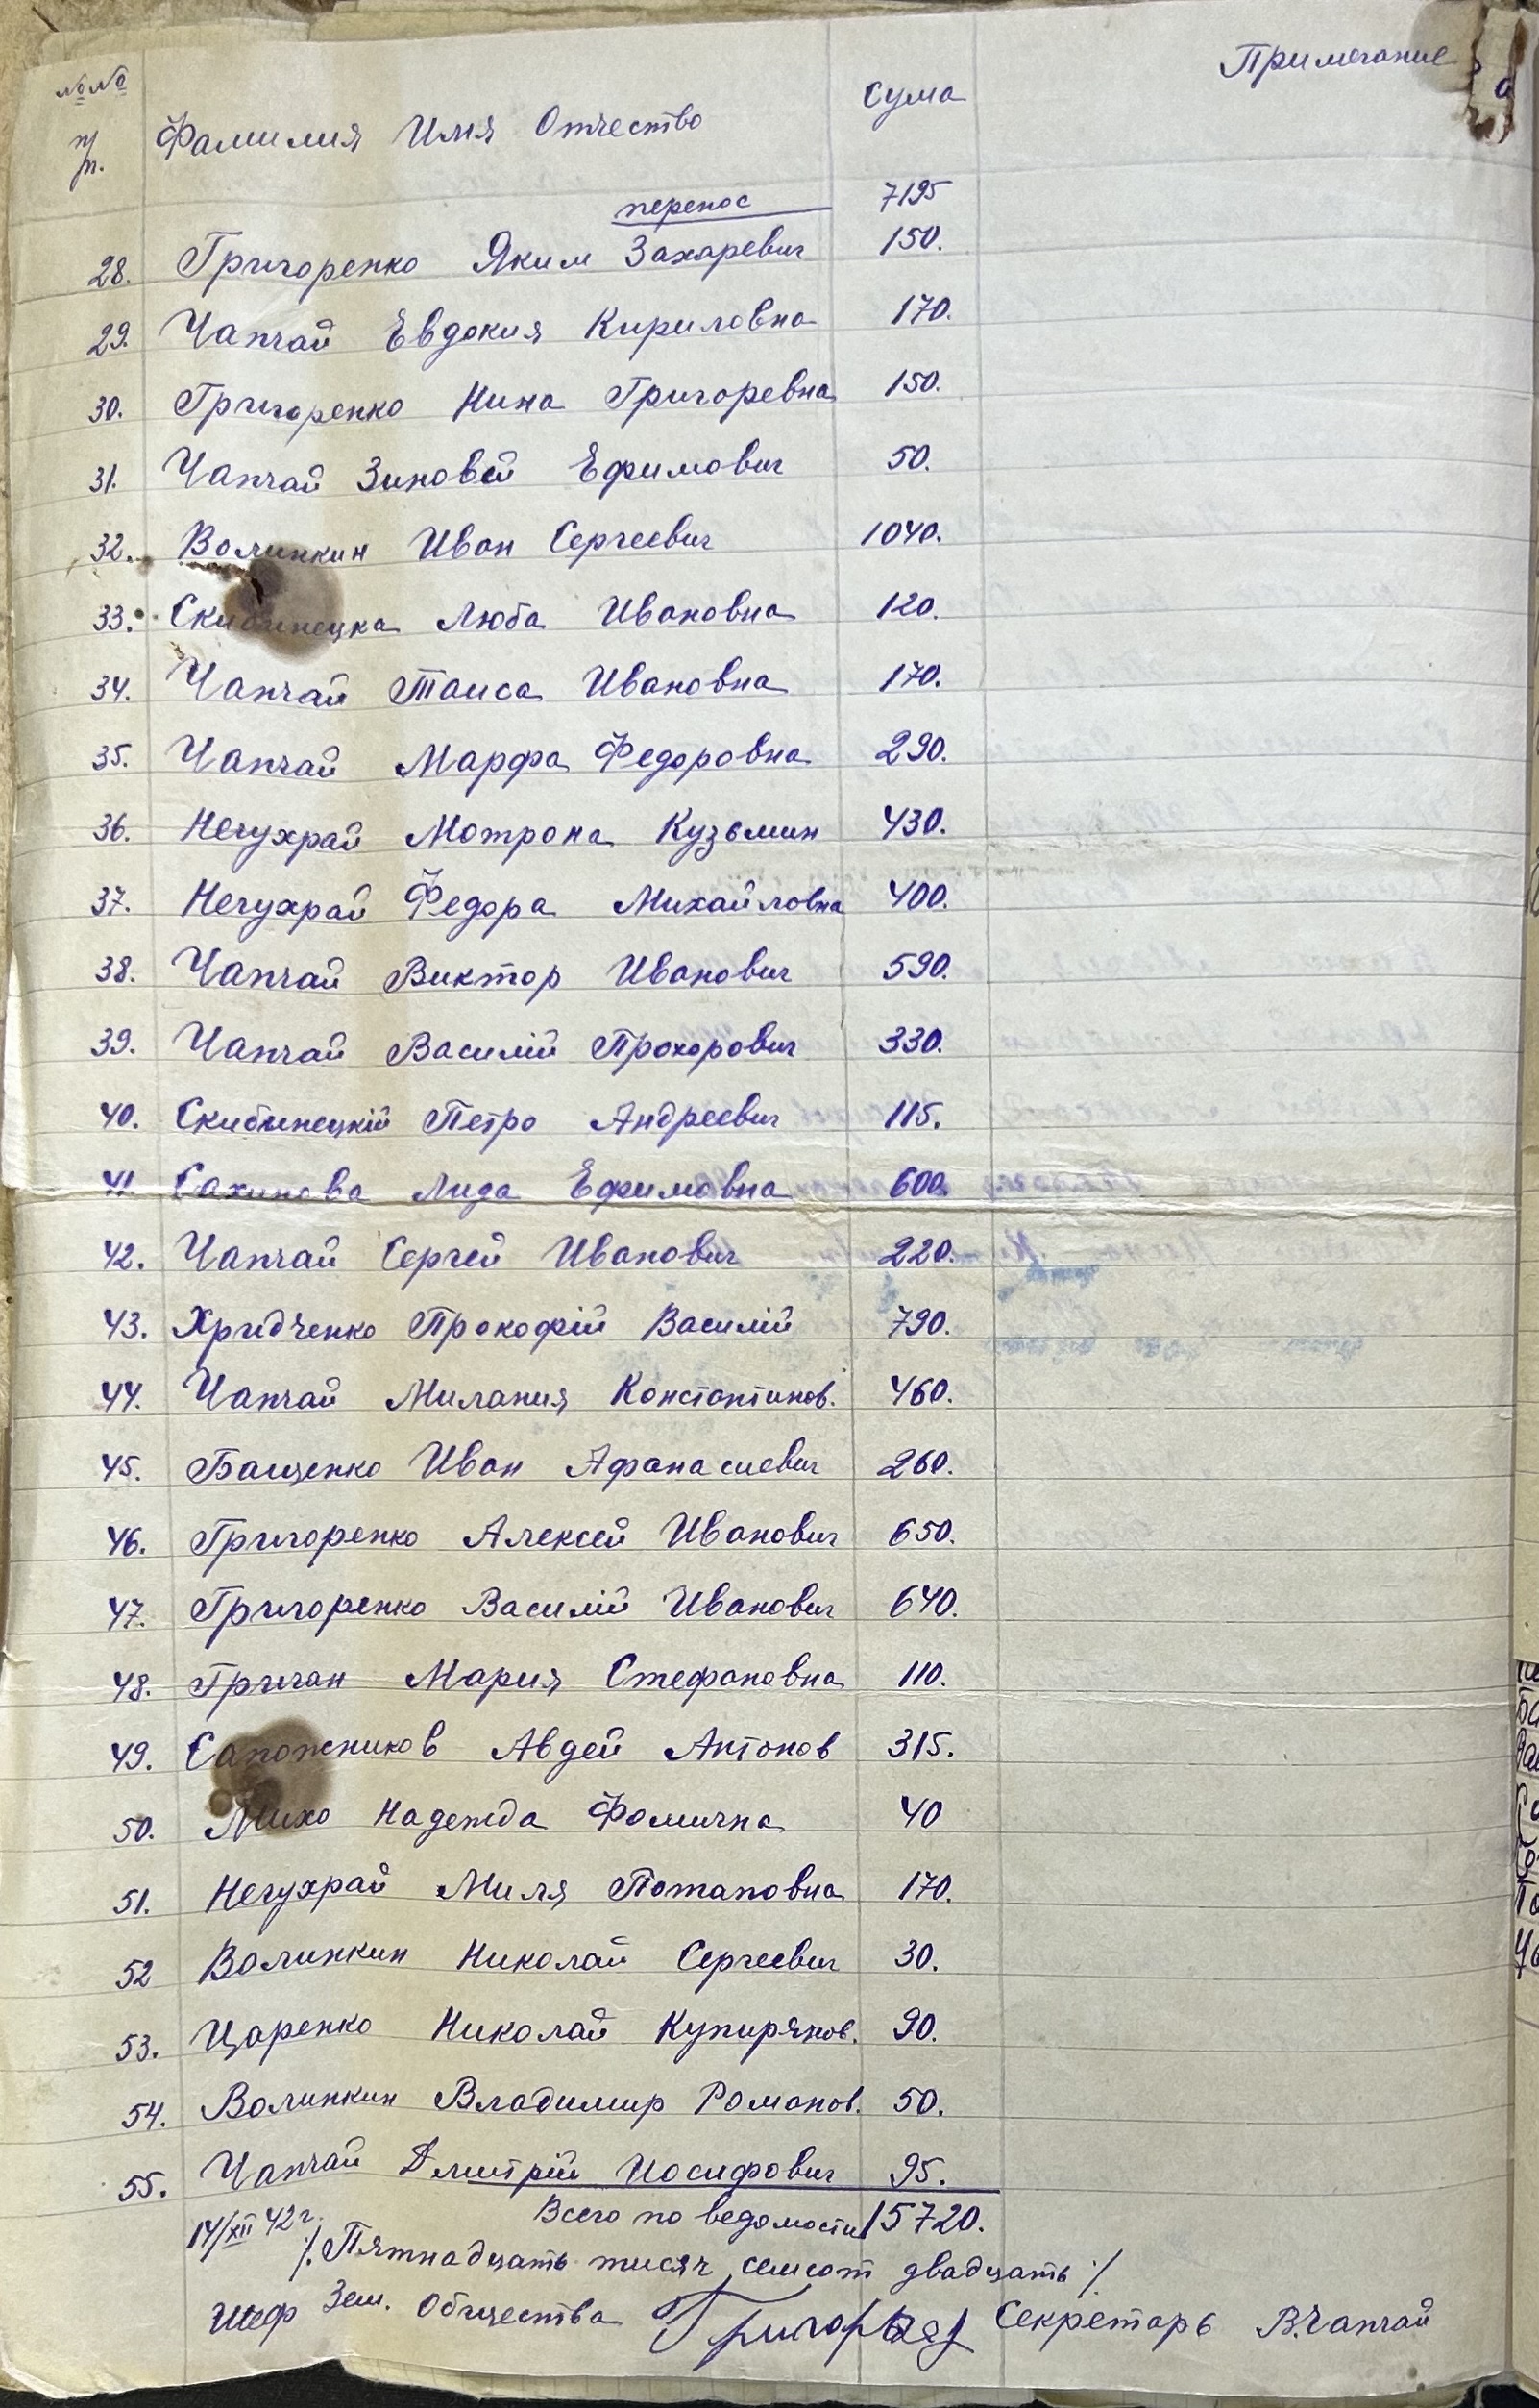 №№ п/п. Фамилия Имя Отчество Сума Примечание
перенос 7195
28. Григоренко Яким Захаревич 150.
29. Чапчай Евдокия Кириловна 170.
30. Григоренко Нина Григоревна 150.
31. Чапчай Зиновей Ефимович 50.
32. Волинкин Иван Сергеевич 1040.
33. Скибинецка Люба Ивановна 120.
34. Чапчай Таиса Ивановна 170.
35. Чапчай Марфа Федоровна 290.
36. Нечухрай Мотрона Кузьмин 430.
37. Нечухрай Федора Михайловна 400.
38. Чапчай Виктор Иванович 590.
39. Чапчай Василій Прохорович 330.
40. Скибинецкій Петро Андреевич 115.
41. Сахинова Лида Ефимовна 600.
42. Чапчай Сергей Иванович 220.
43. Хридченко Прокофій Василій 790.
44. Чапчай Милания Константинов. 460.
45. Бащенко Иван Афанасиевич 260.
46. Григоренко Алексей Иванович 650.
47. Григоренко Василій Иванович 640.
48. Григан Мария Стефановна 110.
49. Сапожников Авдей Антонов 315.
50. Михо Надежда Фомична 40
51. Нечухрай Миля Потаповна 170.
52 Волинкин Николай Сергеевич 30.
53. Царенко Николай Купирянов. 90.
54. Волинкин Владимир Романов. 50.
55. Чапчай Дмитрій Иосифович 95.
14/XII 42 г. Всего по ведомости 15720.
/. Пятнадцать тисяч семсот двадцать ./
Шеф Зем. Общества Секретарь В.Чапчай